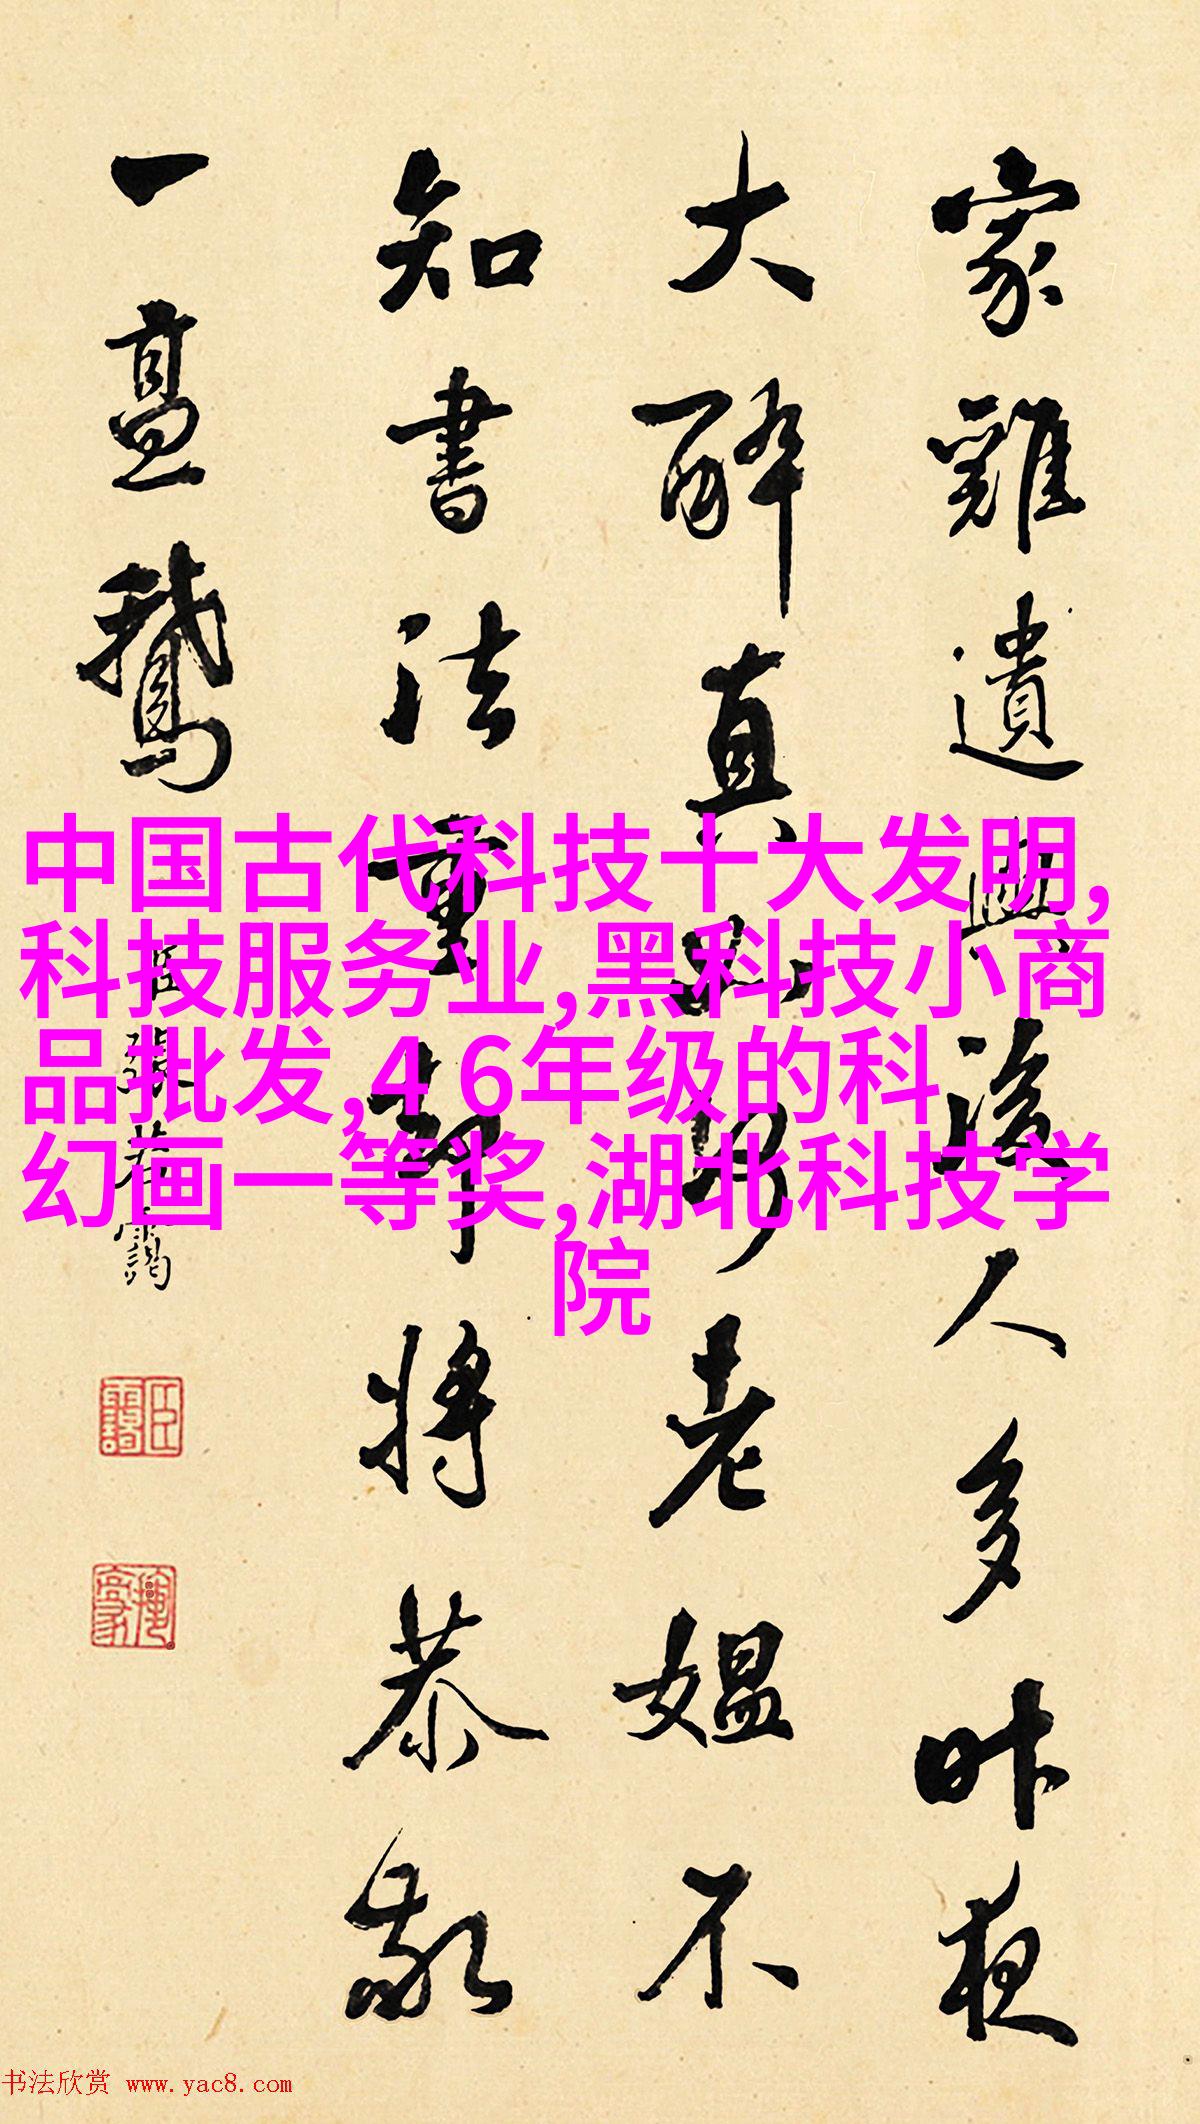 家雞遺後人多昨夜
大醉真老媼不
知書法重却將恭敬
一鵞
臣張若靄
中国古代科技十大发明,
科技服务业,黑科技小商
品批发,4 6年级的科
幻画一等奖,湖北科技学
院
书法欣赏 www.yac8.com